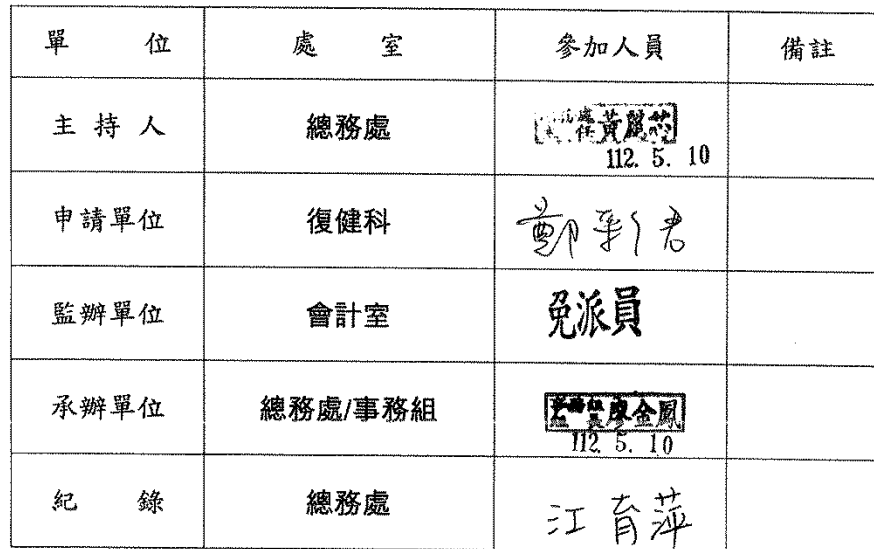 單 位 處 室 參加人員 備註
主 持 人 總務處 黃麗芯
112. 5. 10
申請單位 復健科 鄭新君
監辦單位 會計室 免派員
承辦單位 總務處/事務組 事務組組長廖金鳳
112. 5. 10
紀 錄 總務處 江育萍